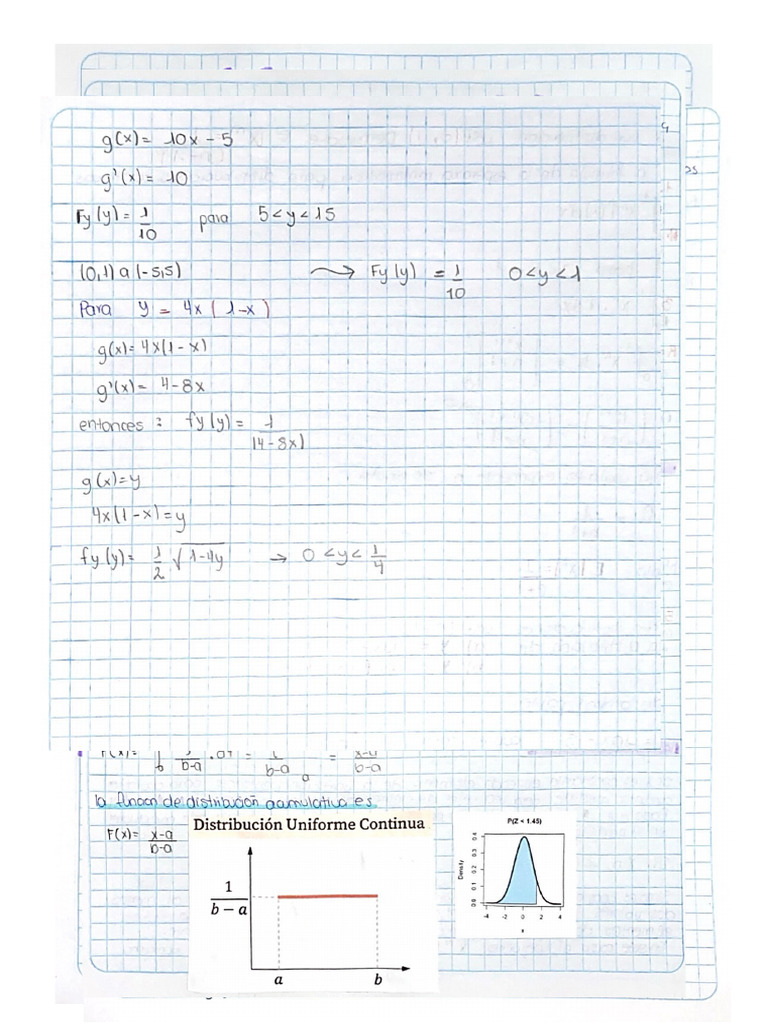 g(x) = 10x - 5
g'(x) = 10
Fy(y) = 1/10 para 5 < y < 15
(0,1) a (-5,5) → Fy(y) = 1/10 0 < y < 1
Para y = 4x(1-x)
g(x) = 4x(1-x)
g'(x) = 4-8x
entonces : fy(y) = 1/|4-8x|
g(x) = y
4x(1-x) = y
fy(y) = 1/2 √1-4y → 0 < y < 1/4
la funcion de distribución acumulativa es.
F(x) = x-a/b-a
Distribución Uniforme Continua
1/b - a
a b
P(Z < 1.45)
Density
0.0 0.1 0.2 0.3 0.4
-4 -2 0 2 4
x